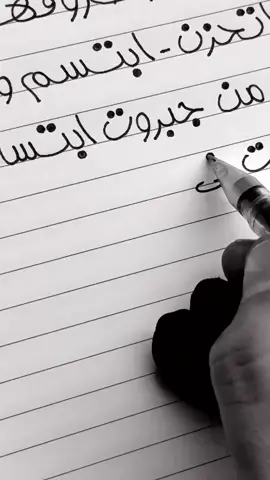 اتحزن - ابتسم و
من جبروت ابتسا
ت